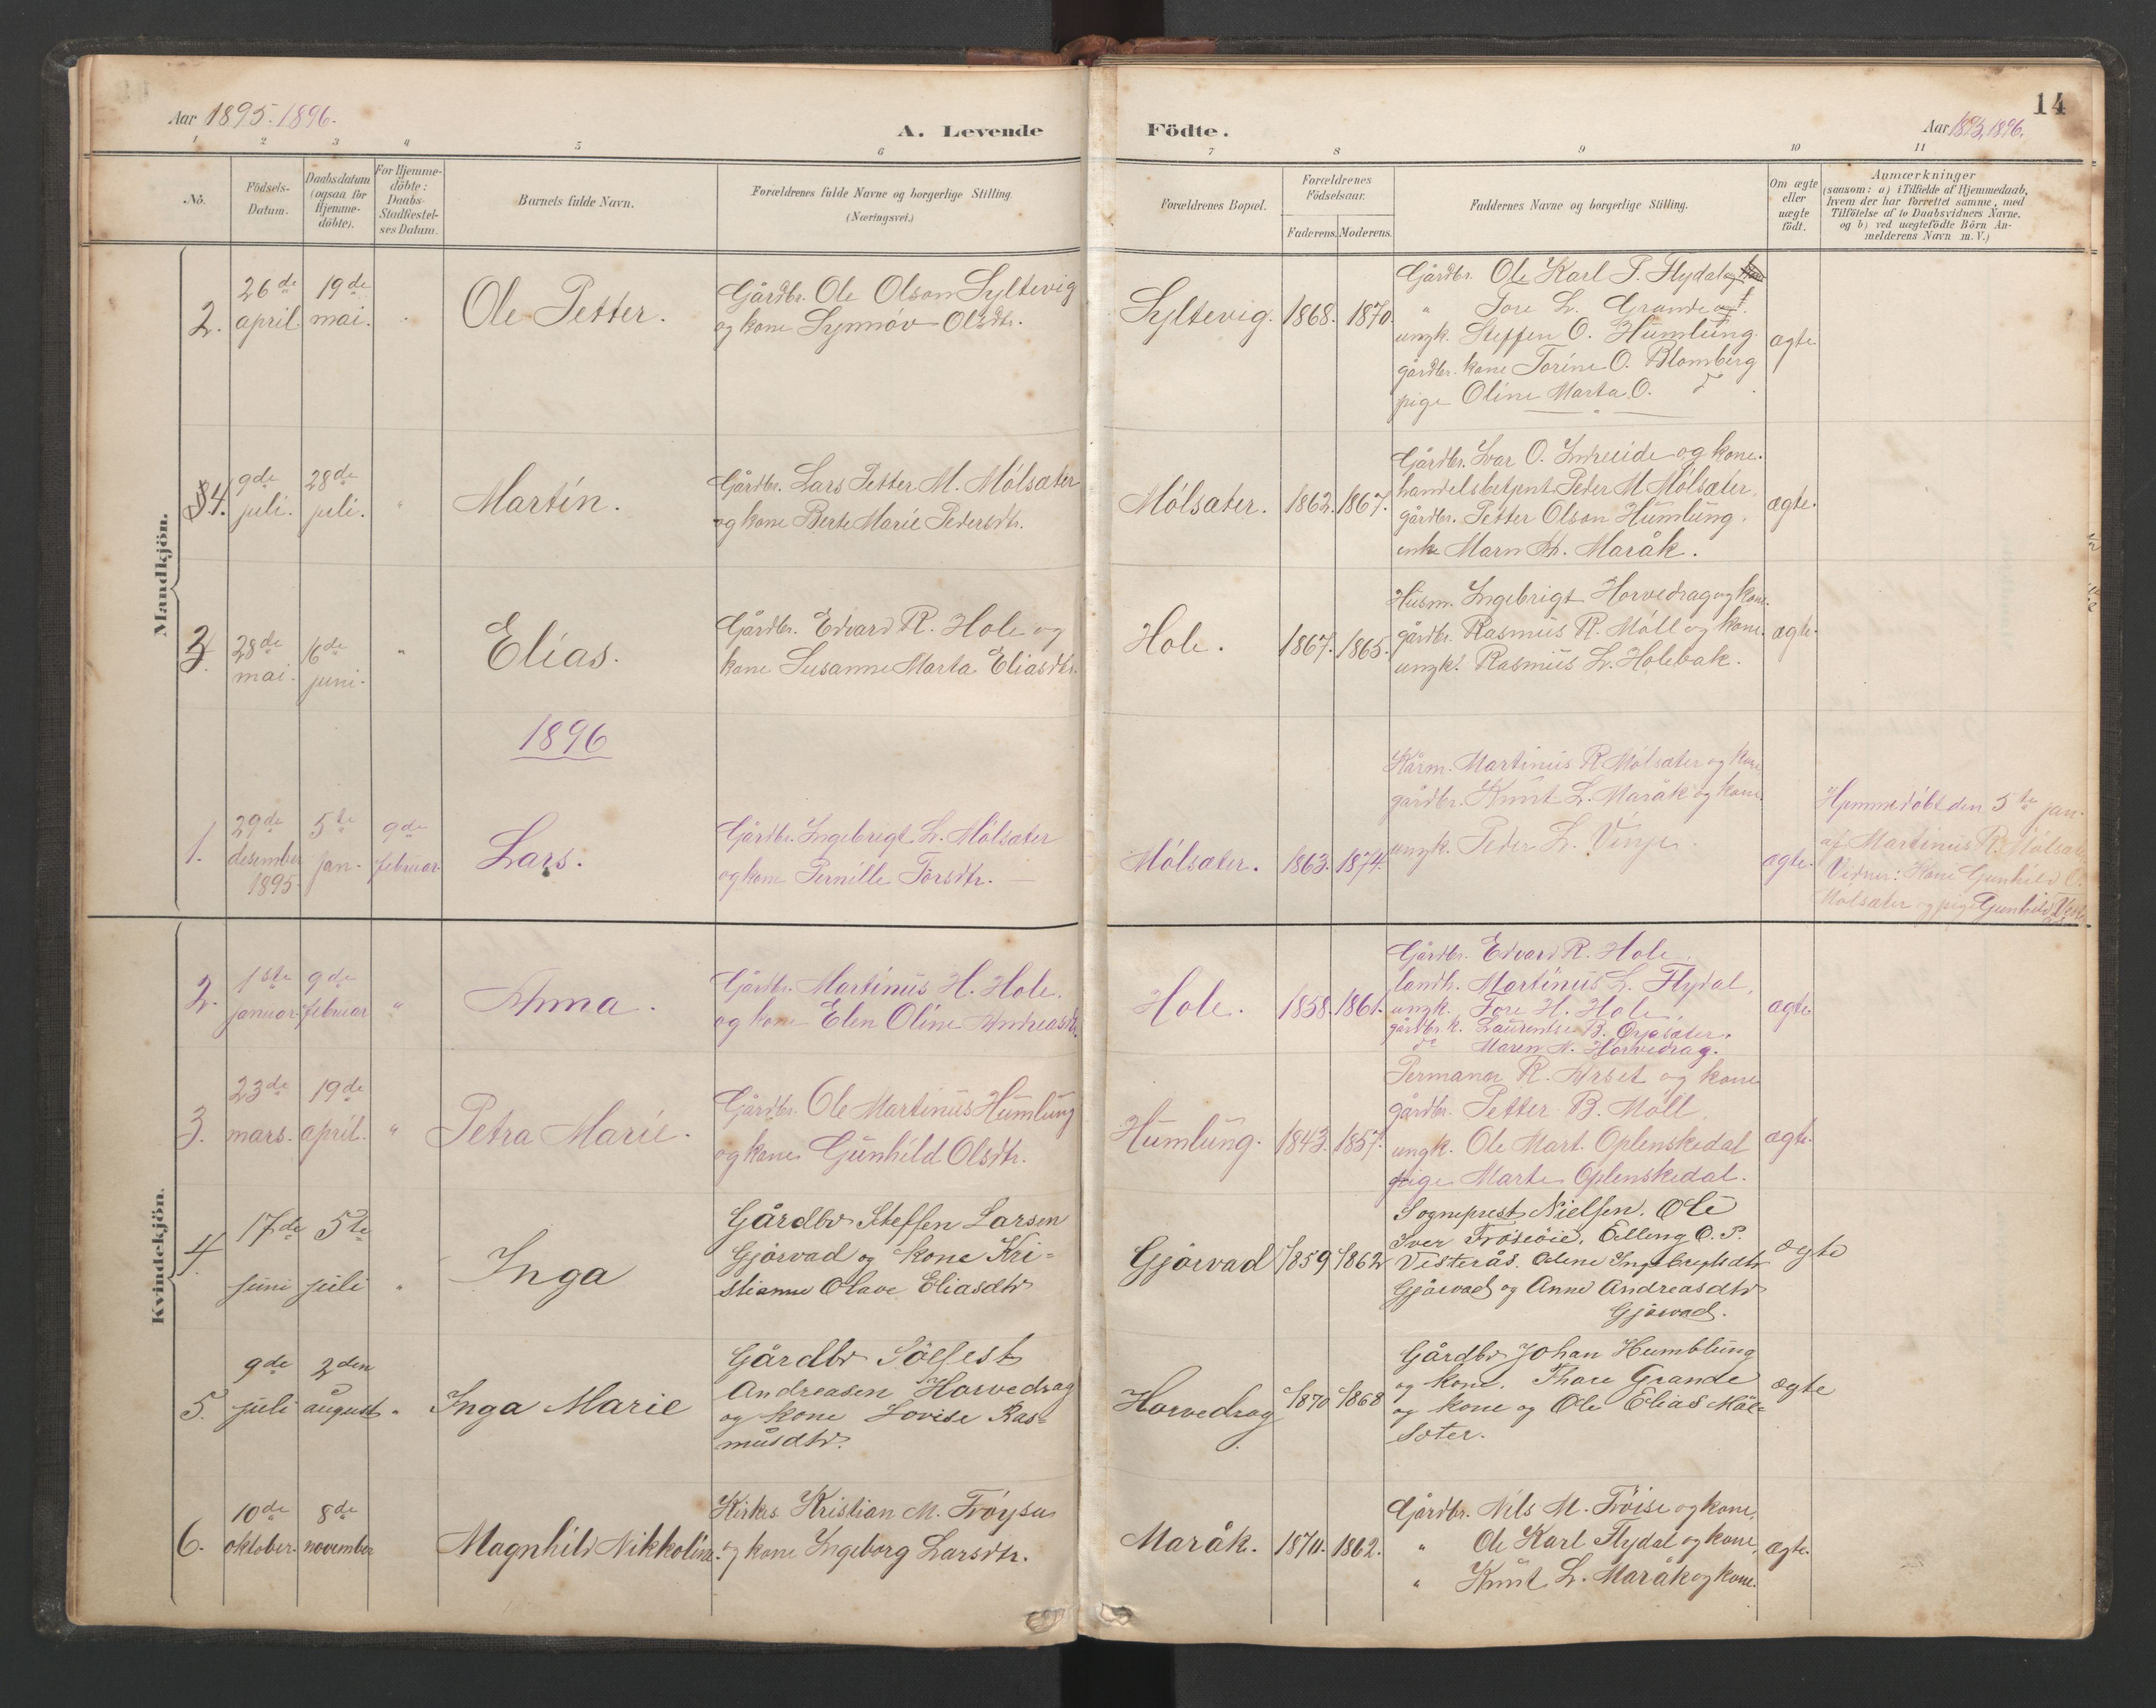 Aar 1895. 1896.
A. Levende
Födte.
Aar 1895, 1896.
14
1 2 3 4 5 6 7 8 9 10 11
No.
Födsels-
Datum.
Daabsdatum
(ogsaa for
Hjemme-
döbte).
For Hjemme-
döbte:
Daabs-
Stadfæstel-
ses Datum.
Barnets fulde Navn.
Forældrenes fulde Navne og borgerlige Stilling.
(Næringsvei.)
Forældrenes Bopæl.
Forældrenes
Födselsaar.
Faderens. Moderens.
Faddernes Navne og borgerlige Stilling.
Om ægte
eller
uægte
födt.
Anmærkninger
(saasom: a) i Tilfælde af Hjemmedaab,
hvem der har forrettet samme, med
Tilföielse af to Daabsvidners Navne.
og b) ved uægtefödte Börn An-
melderens Navn m. V.)
Mandkjön.
2.
26de
april.
19de
mai.
Ole Petter.
Gårdbr. Ole Olson Syltevig
og kone Synnöv Olsdtr.
Syltevig.
1868.
1870.
Gårdbr. Ole Karl P. Flydal
" Tore L. Grande
ungk. Steffen O. Humlung.
gårdbr. kone Torine O. Blomberg
pige Oline Marta O.
ægte
4.
9de
juli.
28de
juli.
"
Martin.
Gårdbr. Lars Petter M. Mölsæter
og kone Berte Marie Pedersdtr.
Mölsæter.
1862.
1867.
Gårdbr. Ivar O. Indreeide og kone.
handelsbetjent Peder M. Mölsæter,
gårdbr. Petter Olson Humlung,
enke Marn M. Maråk.
ægte.
3.
28de
mai.
16de
juni.
"
Elias.
Gårdbr. Edvard R. Hole og
kone Susanne Marta Eliasdtr.
Hole.
1867.
1865.
Husm. Ingebrigt Horvedrag og kone.
gårdbr. Rasmus R. Möll og kone.
ungk. Rasmus L. Holebak.
ægte.
1896
1.
29de
desember
1895.
5te
jan.
9de
februar.
Lars.
Gårdbr. Ingebrigt L. Mölsæter
og kone Pernille Torsdtr.
Mölsæter.
1863.
1874.
Kårm. Martinus R. Mölsæter og kone
gårdbr. Knut L. Maråk og kone
ungk. Peder L. Vinje.
ægte.
Hjemmedöbt den 5te jan.
af Martinus R. Mölsæter
Vidner: Kone Gunhild O.
Mölsæter og pige Gunhild
Kvindekjön.
2.
1ste
januar.
9de
februar
"
Anna.
Gårdbr. Martinus H. Hole.
og kone Elen Oline Andreasdtr.
Hole.
1858.
1861.
Gårdbr. Edvard R. Hole,
landh. Martinus L. Flydal,
ungk. Tore H. Hole,
gårdbr. k. Laurentse B. Orjasæter.
de Maren N. Horvedrag.
ægte
3.
23de
mars.
19de
april.
"
Petra Marie.
Gårdbr. Ole Martinus Humlung
og kone Gunhild Olsdtr.
Humlung.
1843.
1857.
Permann R. Årset og kone
gårdbr. Petter B. Möll,
ungk. Ole Mart. Oplenskedal
pige Marte Oplenskedal.
ægte.
4.
17de
juni
5te
juli
"
Inga
Gårdbr Steffen Larsen
Gjörvad og kone Kri-
stianne Olave Eliasdtr
Gjörvad
1859
1862
Sogneprest Nielsen. Ole
Iver Fröseöie, Elling O. P.
Vesterås. Oline Ingebrigtsdtr
Gjörvad og Anne Andreasdtr
Gjörvad.
ægte
5.
9de
juli
2den
august
"
Inga Marie
Gårdbr Sölfest
Andreasen Horvedrag
og kone Lovise Ras-
musdtr.
Horvedrag.
1870
1868
Gårdbr Johan Humblung
og kone. Thore Grande
og kone og Ole Elias Möl-
sæter.
ægte
6.
10de
oktober.
8de
november
Magnhild Nikkoline.
Kirkes. Kristian M. Fröysa
og kone Ingeborg Larsdtr.
Maråk.
1870.
1862.
Gårdbr. Nils M. Fröise og kone,
" Ole Karl Flydal og kone,
" Knut L. Maråk og kone.
ægte.